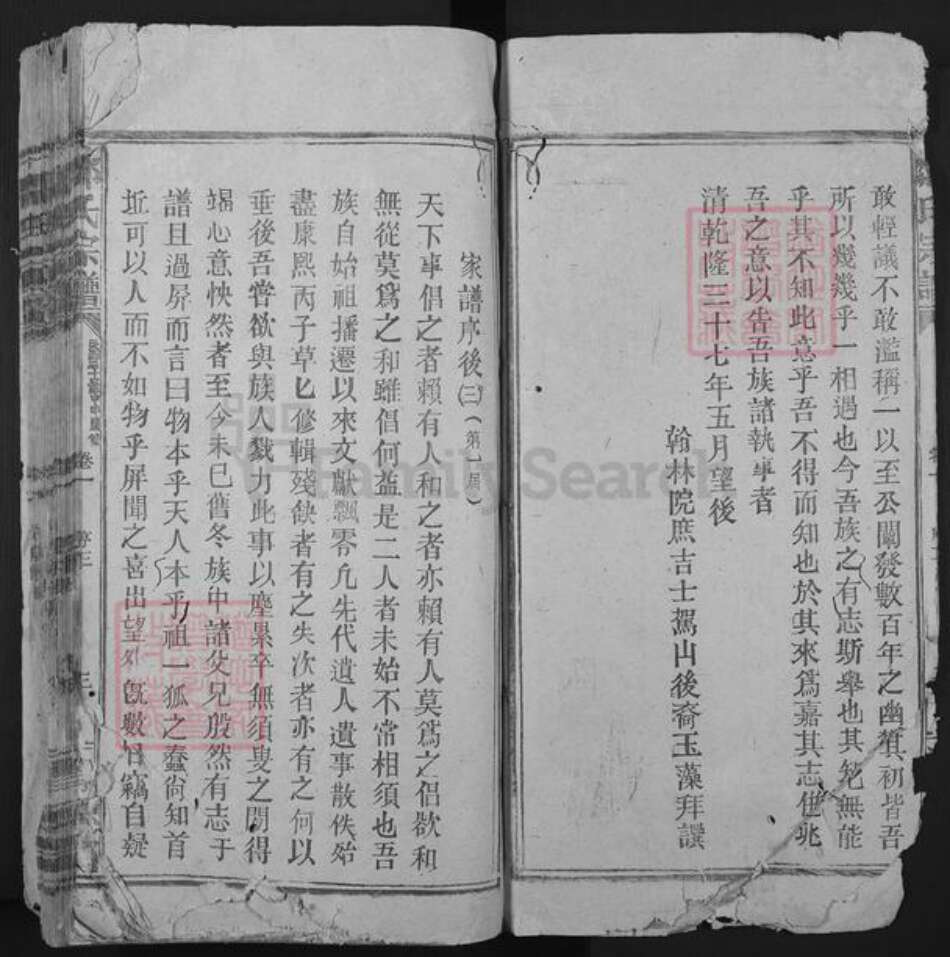 敢輕議不敢濫稱一以至公闡發數百年之幽質初皆吾
所以幾幾乎一相遇也今吾族之有志斯舉也其能無能
乎其不知此意乎吾不得而知也於其來爲嘉其志俾兆
吾之意以告吾族諸執事者
清乾隆三十七年五月望後
翰林院庶吉士駕山後裔玉藻拜譔
家譜序後㈢(第一屆)
天下事倡之者賴有人和之者亦賴有人莫爲之倡欲和
無從莫爲之和雖倡何益是二人者未始不常相須也吾
族自始祖播遷以來文獻飄零凡先代遺人遺事散佚殆
盡康熙丙子草乜修輯殘缺者有之失次者亦有之何以
垂後吾嘗欲與族人戮力此事以塵累卒無須叟之閒得
竭心意怏然者至今未已舊冬族中諸父兄殷然有志于
譜且過屏而言曰物本乎天人本乎祖一狐之蠢尙知首
坵可以人而不如物乎屏聞之喜出望外旣數日竊自疑
氏宗譜
卷一
序三
三
FamilySearch